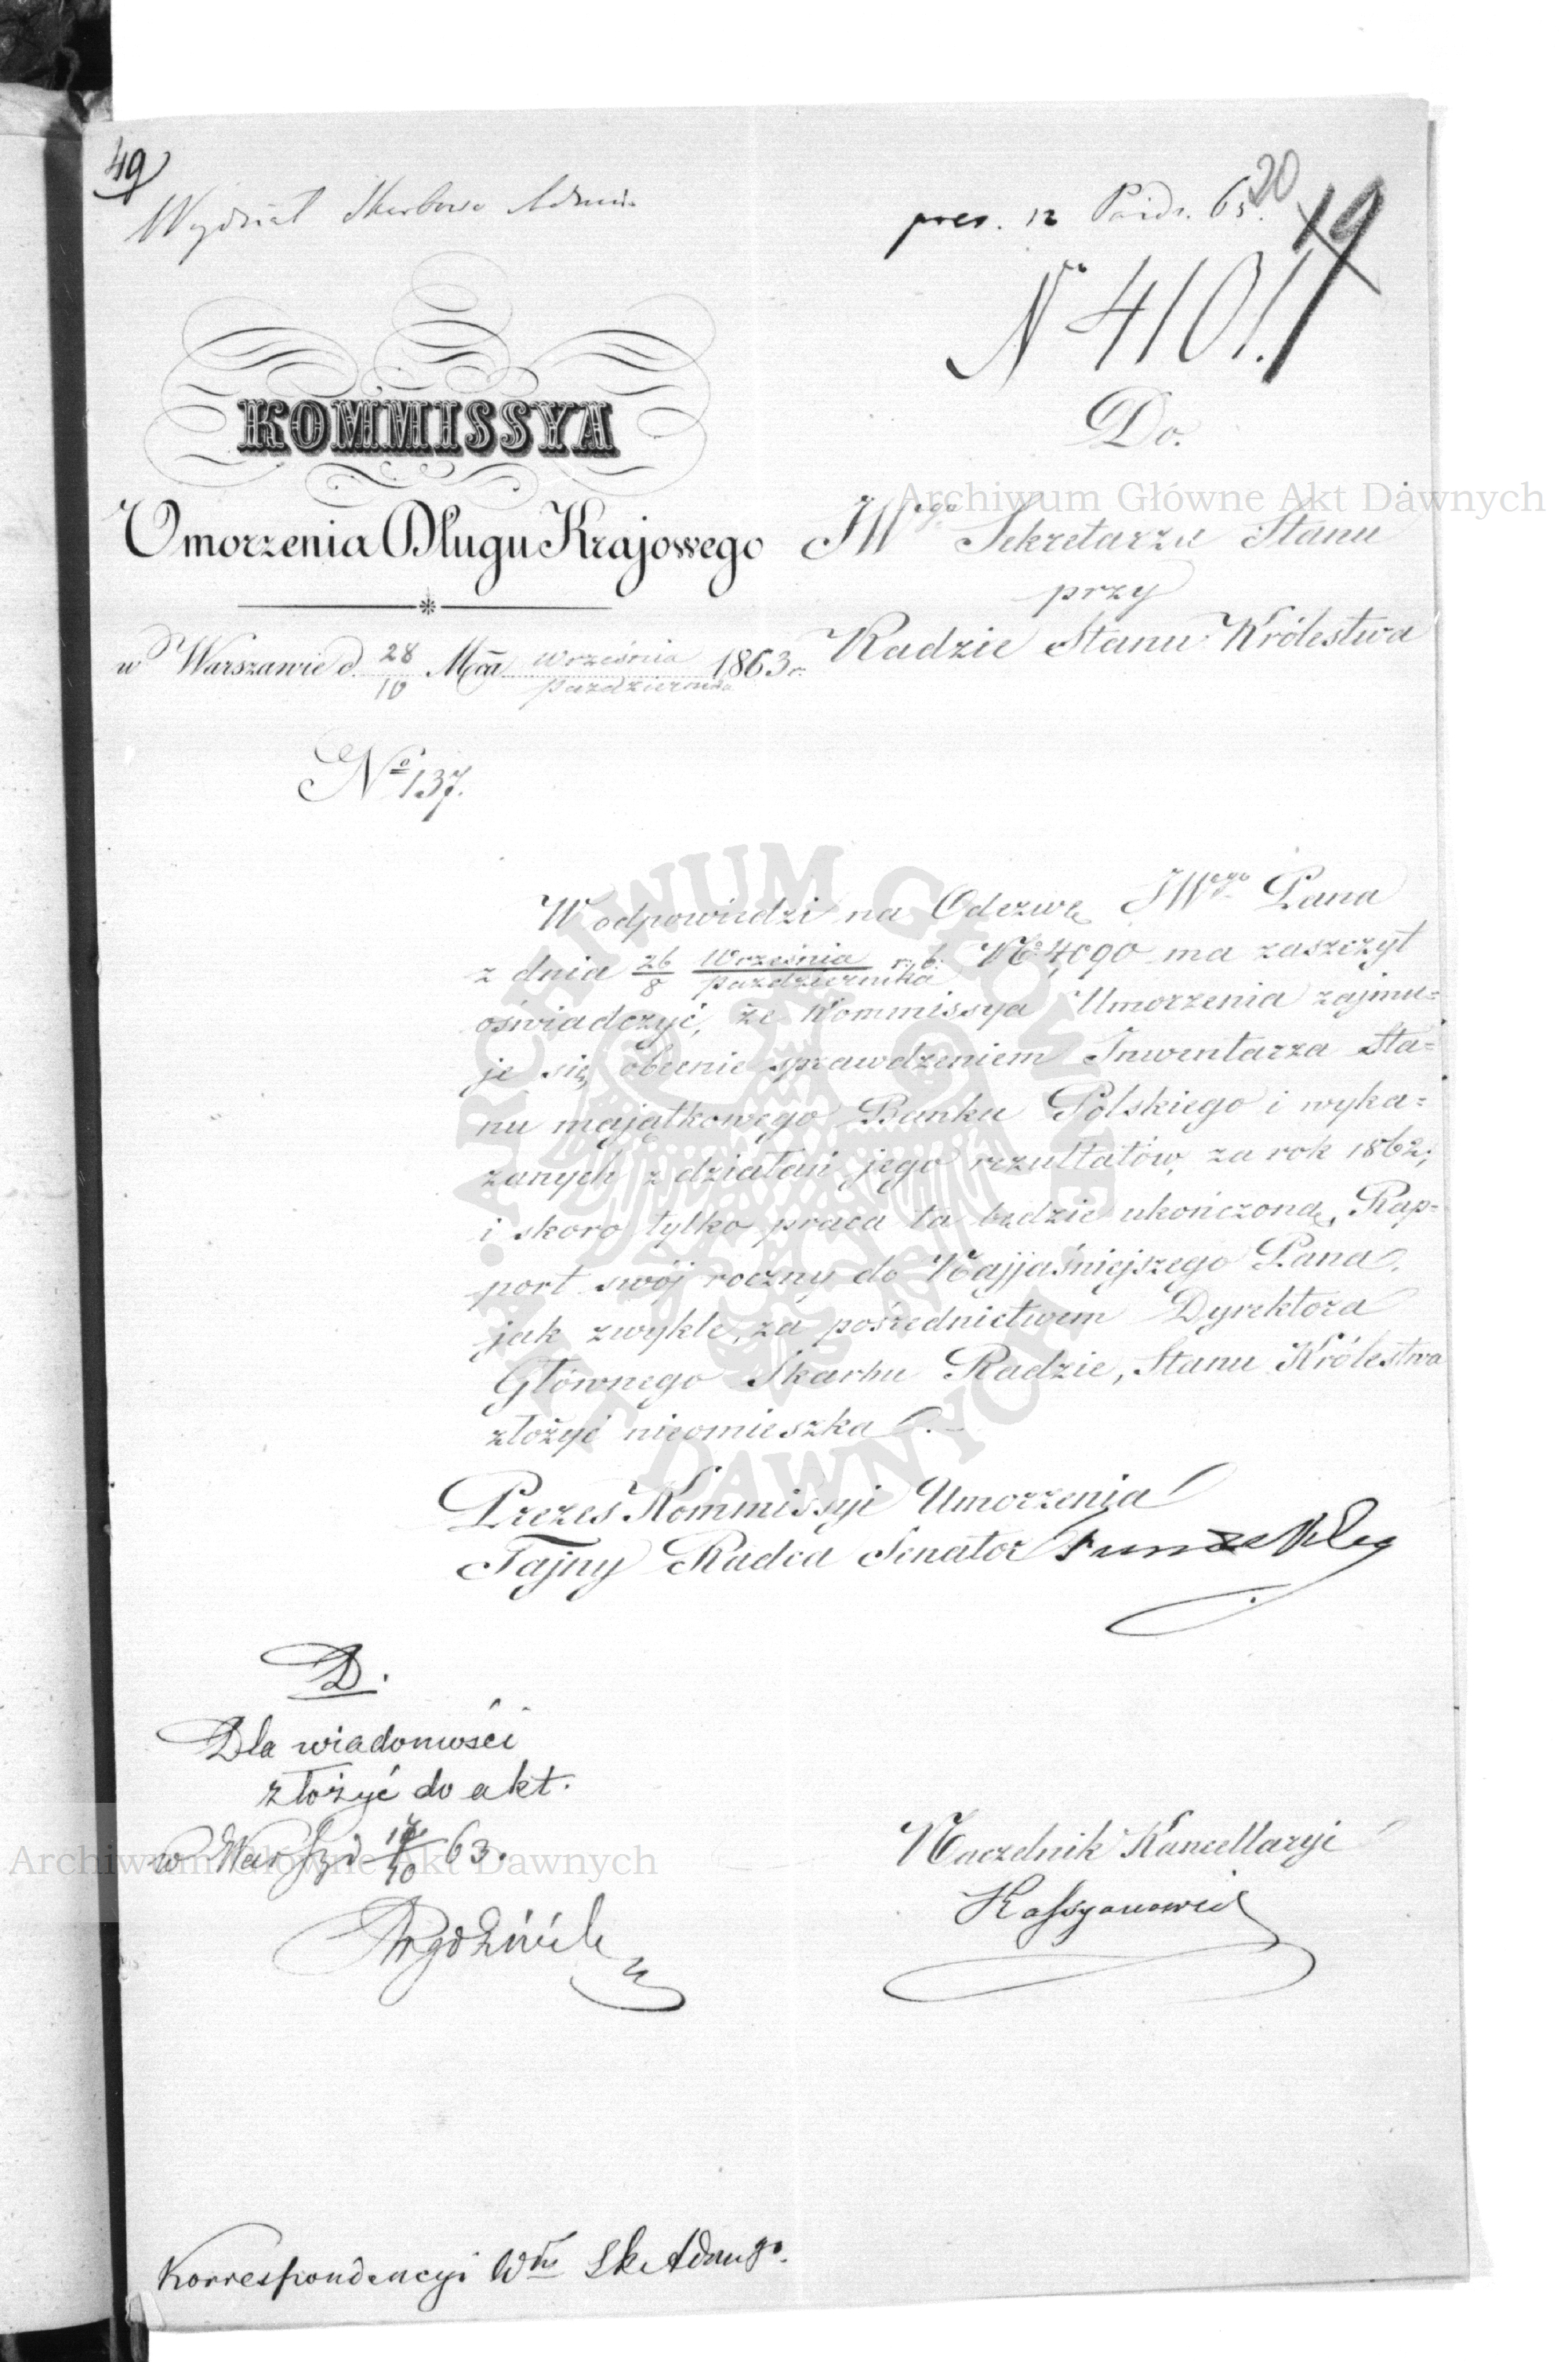 49
Wydział Skarbowo Admin.
pres. 12 Paźdz. 63.
20
19
N 4101.
KOMMISSYA
Umorzenia Długu Krajowego
w Warszawie d. 28/10 Mca Września/Października 1863 r.
No 137.
Do.
JWego Sekretarza Stanu
przy
Radzie Stanu Królestwa
W odpowiedzi na Odezwę JWego Pana
z dnia 26/8 Września/Października r. b. No 4090 ma zaszczyt
oświadczyć, że Kommissya Umorzenia zajmu=
je się obecnie sprawdzeniem Inwentarza Sta=
nu majątkowego Banku Polskiego i wyka=
zanych z działań jego rezultatów, za rok 1862;
i skoro tylko praca ta będzie ukończoną, Rap=
port swój roczny do Najjaśniejszego Pana,
jak zwykle, za pośrednictwem Dyrektora
Głównego Skarbu Radzie, Stanu Królestwa
złożyć nieomieszka.
Prezes Kommissyi Umorzenia
Tajny Radca Senator
D.
Dla wiadomości
złożyć do akt.
w Warsz d 63.
Naczelnik Kancellaryi
Kassyanowicz
Korrespondencyi Włu Sk Admgo.
Archiwum Główne Akt Dawnych
ARCHIWUM GŁÓWNE
AKT DAWNYCH
Archiwum Główne Akt Dawnych